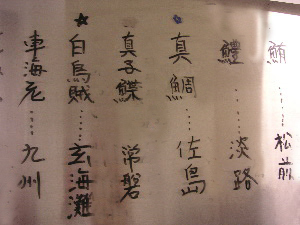 鮪……松前
鱧……淡路
真鯛……佐島
真子鰈……常磐
白烏賊……玄海灘
車海老……九州